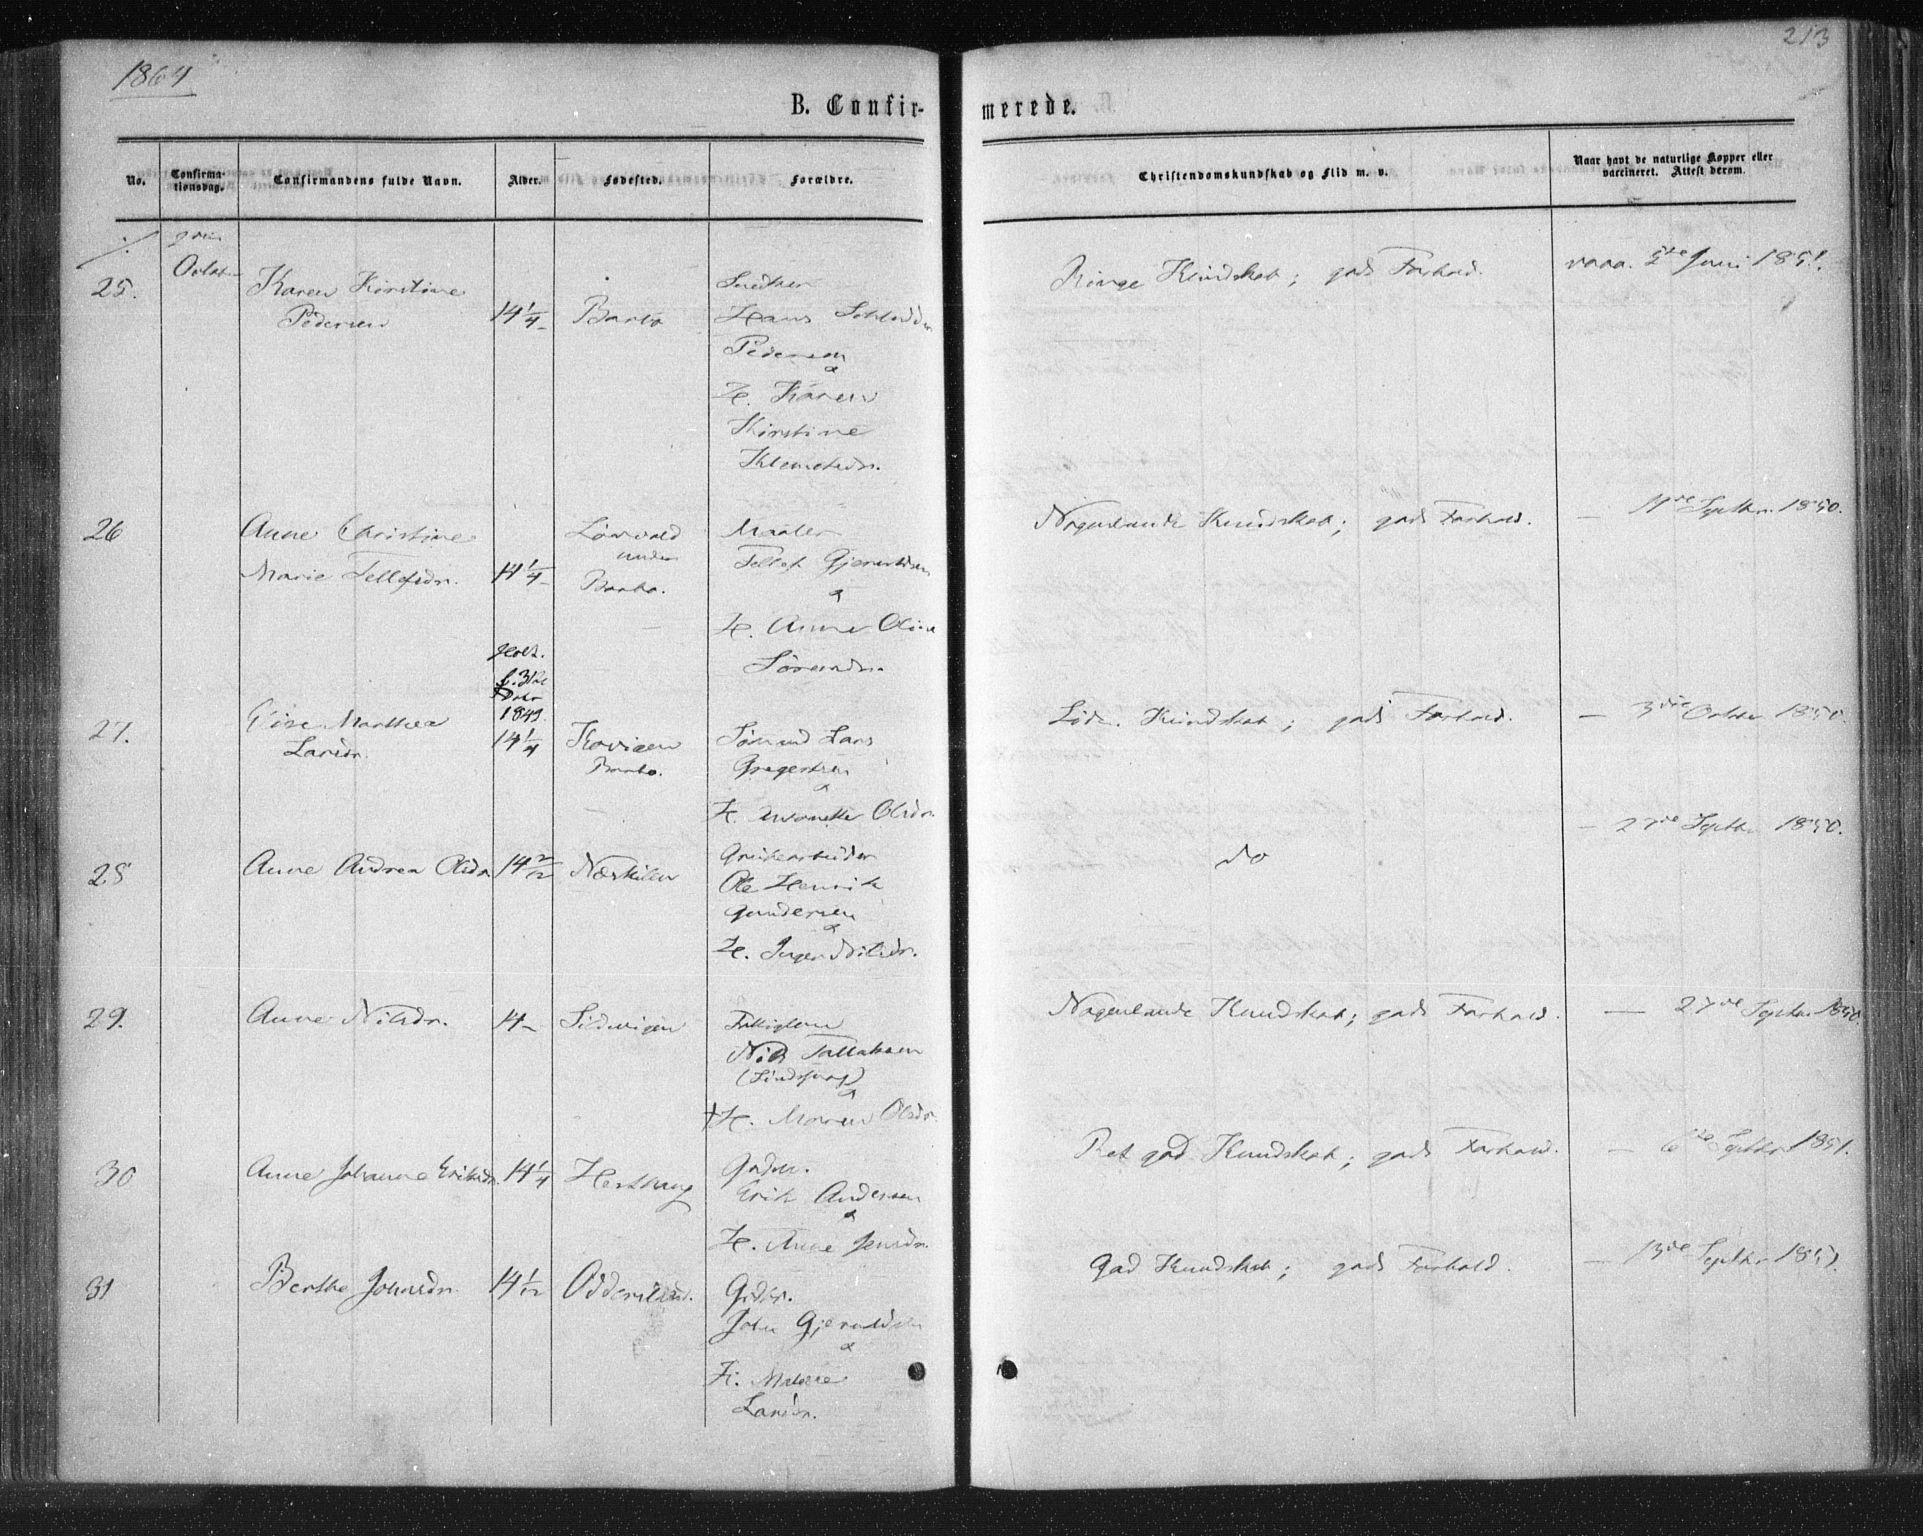 1864
213
B. Confir-
merede.
No.
Confirma-
tionsdag.
Confirmandens fulde Navn.
Alder.
Fødested.
Forældre.
Christendomskundskab og Flid m. v.
Naar havt de naturlige Kopper eller
vaccineret. Attest derom.
25.
Octob.
Karen Kirstine
Pedersen
14 1/4
Barbo
Hans
Pedersen
&
H. Karen
Kirstine
Klemetsdr.
Ringe Kundskab; gods Forhold.
vacc. 5te Juni 1851.
26
Anne Christine
Marie Tellefsdr.
14 1/4
under
Barbo.
Maaler
Tellef Gjeruldsen
&
H. Anne Oline
Sørensdr.
Nogenlunde Kundskab; gods Forhold.
— Septbr. 1850.
1849.
27.
Marthea
Larsdr.
14 1/4
Barbo.
Sømand Lars
Gregersen
&
H. Antonette Olsdr.
Kundskab; gods Forhold.
— 3die Octobr. 1850.
28
Anne Andrea Olsdr.
14 2/12
Næskilen
Grubearbeider
Ole Henrik
Gundersen
&
H. Inger Nilsdr.
do
— 27de Septbr. 1850.
29.
Anne Nilsdr.
14
Sildvigen
Nils Tallaksen
&
† H. Maren Olsdr.
Nogenlunde Kundskab; gods Forhold.
— 27de Septbr. 1850.
30
Anne Johanne Eriksdr.
14 1/4
Hesthaug
Erik Andersen
&
H. Anne Jensdr.
Ret god Kundskab; gods Forhold.
— 6te Septbr. 1851.
31
Berthe Johnsdr.
14 1/12
Gdbr.
John Gjeruldsen
&
H.
Larsdr.
God Kundskab; gods Forhold.
— 13de Septbr. 1851.